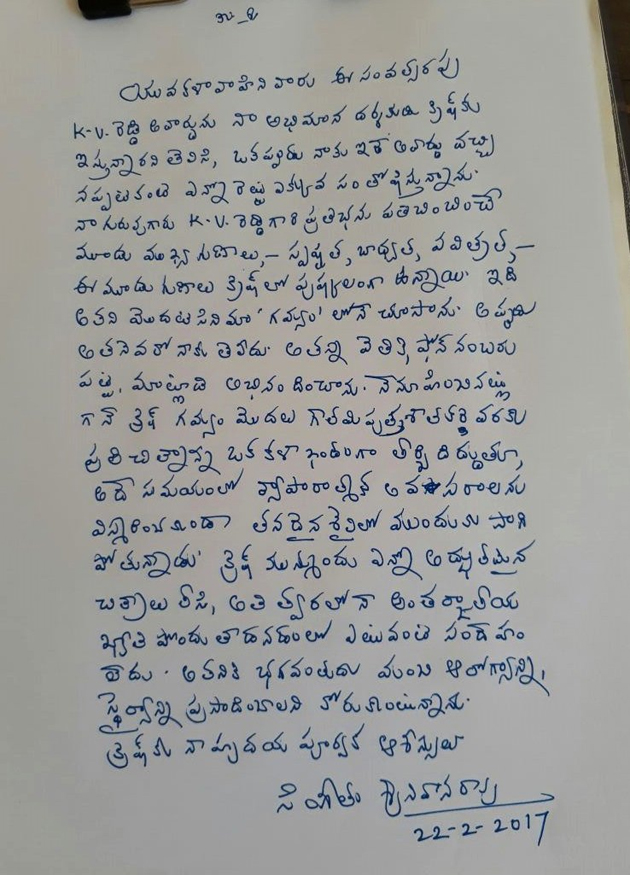 యువకళావాహిని వారు ఈ సంవత్సరపు
K.V. రెడ్డి అవార్డును నా అభిమాన దర్శకుడు క్రిష్‌కు
ఇస్తున్నారని తెలిసి, ఒకప్పుడు నాకు ఇదే అవార్డు వచ్చి
నప్పటికంటే ఎన్నో రెట్లు ఎక్కువ సంతోషిస్తున్నాను.
నా గురువుగారు K.V. రెడ్డిగారి ప్రతిభను ప్రతిబింబించే
మూడు ముఖ్య గుణాలు, – స్పష్టత, బాధ్యత, పవిత్రత, –
ఈ మూడు గుణాలు క్రిష్‌లో పుష్కలంగా ఉన్నాయి. ఇది
అతని మొదటి సినిమా 'గమ్యం' లోనే చూసాను. అప్పుడు
అతనెవరో నాకు తెలీదు. అతన్ని వెతికి, ఫోన్ నంబరు
పట్టి, మాట్లాడి అభినందించాను. నేనూహించినట్లు
గానే క్రిష్ గమ్యం మొదలు గౌతమిపుత్ర శాతకర్ణి వరకు
ప్రతి చిత్రాన్ని ఒక కళాఖండంగా తీర్చి దిద్దుతూ,
అదే సమయంలో వ్యాపారాత్మక అవసరాలను
విస్మరించకుండా తనదైన శైలిలో ముందుకు సాగి
పోతున్నాడు. క్రిష్ మున్ముందు ఎన్నో అద్భుతమైన
చిత్రాలు తీసి, అతి త్వరలోనే అంతర్జాతీయ
ఖ్యాతి పొందుతాడనడంలో ఎటువంటి సందేహం
లేదు. అతనికి భగవంతుడు మంచి ఆరోగ్యాన్ని,
స్థైర్యాన్ని ప్రసాదించాలని కోరుకుంటున్నాను.
క్రిష్‌కు నా హృదయ పూర్వక ఆశీస్సులు
సింగీతం శ్రీనివాసరావు
22-2-2017